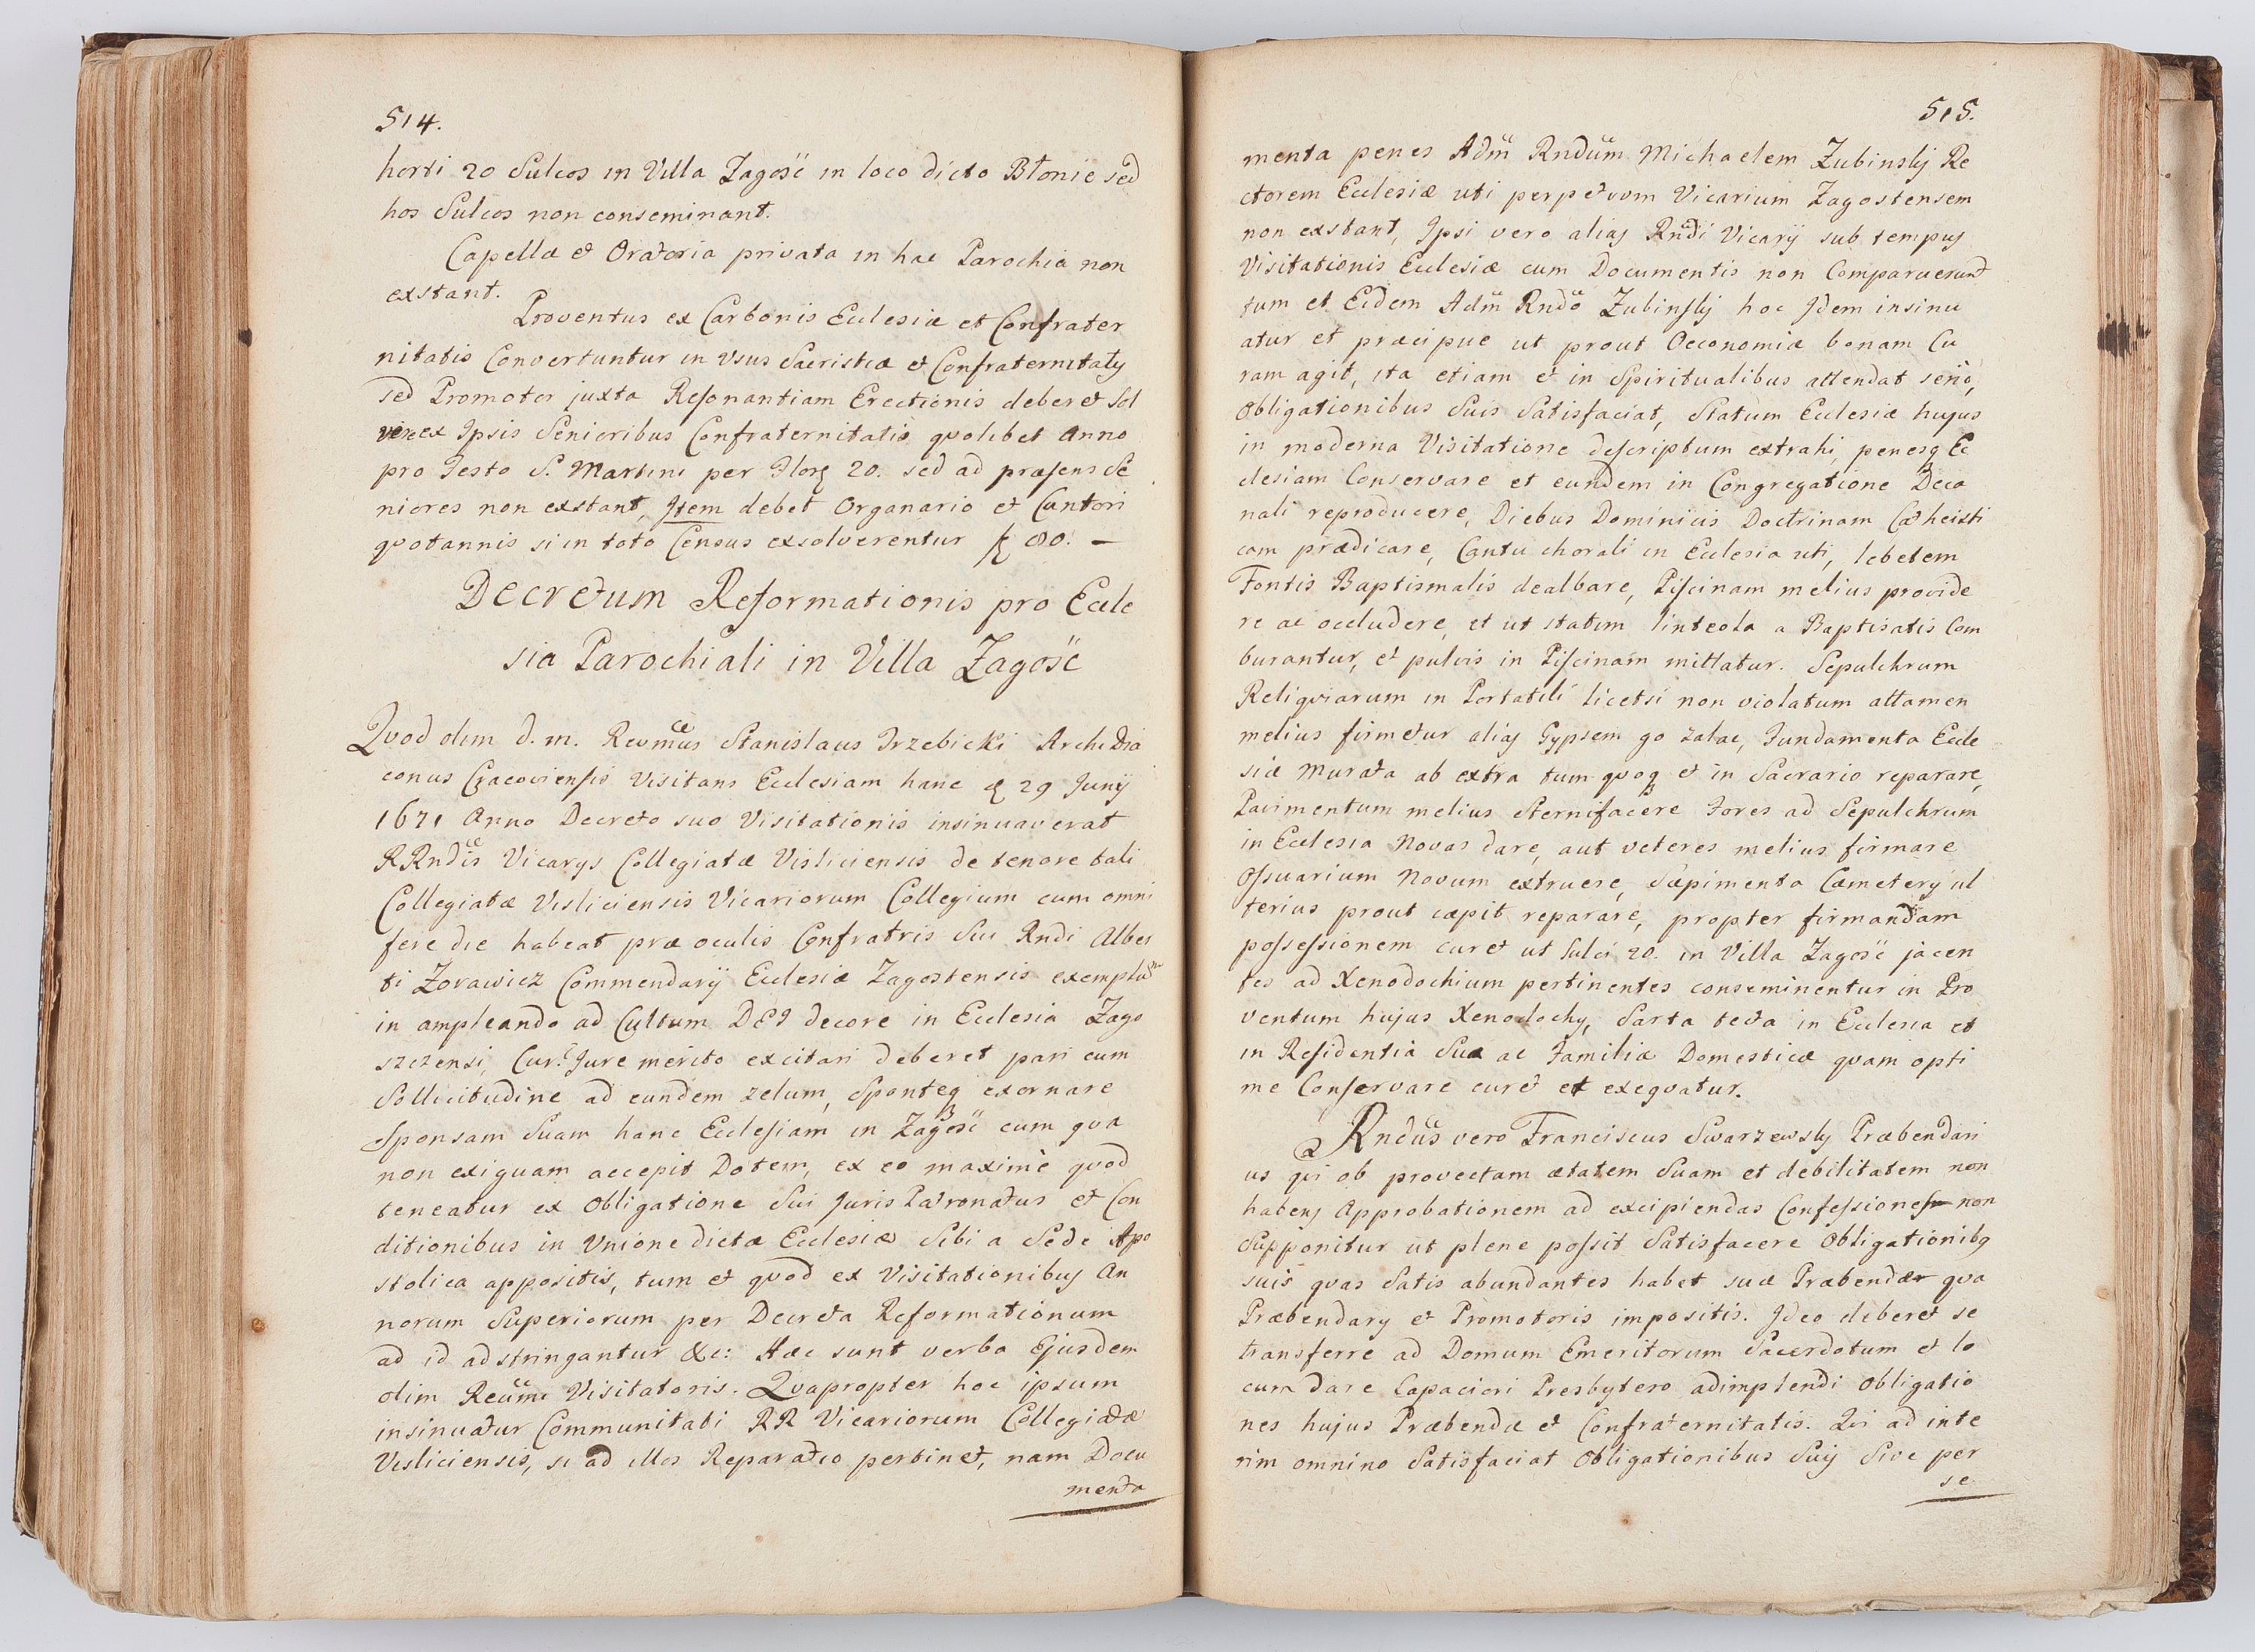 514.
horti 20 Sulcos in Villa Zagość in loco dicto Błonie sed
hos Sulcos non conseminant.
Capellæ et Oratoria privata in hac Parochia non
exstant.
Proventus ex Carbonis Ecclesiæ et Confrater
nitatis Convertuntur in Usus Sacristiæ et Confraternitatis
sed Promotor juxta Resonantiam Erectionis deberet Sol
vere ex Ipsis Senioribus Confraternitatis quolibet Anno
pro Festo S. Martini per Flor 20. sed ad præsens Se
niores non exstant, Item debet Organario et Cantori
quotannis si in toto Census exsolverentur f 80. —
Decretum Reformationis pro Eccle
sia Parochiali in Villa Zagość
Quod olim d. m. Revmus Stanislaus Trzebicki Archidia
conus Cracoviensis Visitans Ecclesiam hanc d 29 Junij
1671 Anno Decreto suo Visitationis insinuaverat
RRndis Vicarys Collegiatæ Visliciensis de tenore tali
Collegiatæ Visliciensis Vicariorum Collegium cum omni
fere die habeat præ oculis Confratris Sui Rndi Alber
ti Zorawicz Commendarij Ecclesiæ Zagostensis exemplum
in ampleando ad Cultum DEI decore in Ecclesia Zago
szczensi, Cur. Jure merito excitari deberet pari cum
Sollicitudine ad eundem zelum, Sponteq exornare
Sponsam Suam hanc Ecclesiam in Zagość cum qua
non exiguam accepit Dotem, ex eo maximè quod
teneatur ex Obligatione Sui Juris Patronatus et Con
ditionibus in Unione dictæ Ecclesiæ Sibi a Sede Apo
stolica appositis, tum et quod ex Visitationibus An
norum Superiorum per Decreta Reformationum
ad id adstringantur &c: Hæc sunt verba Ejusdem
olim Reumi Visitatoris. Quapropter hoc ipsum
insinuatur Communitati RR Vicariorum Collegiatæ
Visliciensis, si ad illos Reparatio pertinet, nam Docu
menta
515.
menta penes Adm Rndum Michaelem Zubinsky Re
ctorem Ecclesiæ uti perpetuom Vicarium Zagostensem
non exstant, Ipsi vero alias Rndi Vicarij sub tempus
Visitationis Ecclesiæ cum Documentis non Comparuerunt
tum et Eidem Adm Rndo Zubinsky hoc Idem insinu
atur et præcipue ut prout Oeconomiæ bonam Cu
ram agit, ita etiam et in Spiritualibus attendat serio,
Obligationibus Suis Satisfaciat, Statum Ecclesiæ hujus
in moderna Visitatione descriptum extrahi, penesq Ec
clesiam Conservare et eundem in Congregatione Deca
nali reproducere, Diebus Dominicis Doctrinam Catheisti
cam prædicare, Cantu chorali in Ecclesia uti, lebetem
Fontis Baptismalis dealbare, Piscinam melius provide
re ac occludere, et ut statim linteola a Baptisatis Com
burantur, et pulvis in Piscinam mittatur. Sepulchrum
Reliquiarum in Portatili licetsi non violatum attamen
melius firmetur alias Gypsem go zalac, Fundamenta Eccle
siæ Murata ab extra tum quoq et in Sacrario reparare,
Pavimentum melius Sternifacere Fores ad Sepulchrum
in Ecclesia Novas dare, aut veteres melius firmare
Ossuarium Novum extruere, Sæpimenta Cæmetery ul
terius prout cæpit reparare, propter firmandam
possessionem curet ut Sulci 20. in Villa Zagość jacen
tes ad Xenodochium pertinentes conseminentur in Pro
ventum hujus Xenodochy, Sarta tecta in Ecclesia et
in Residentia Sua ac Familiæ Domesticæ quam opti
me Conservare curet et exequatur.
Rndus vero Franciscus Swarzewsky Præbendari
us qvi ob provectam ætatem Suam et debilitatem non
habens Approbationem ad excipiendas Confessiones non
Supponitur ut plene possit Satisfacere Obligationibq
suis quas Satis abundantes habet suæ Præbendæ qua
Præbendary et Promotoris impositis. Ideo deberet se
transferre ad Domum Emeritorum Sacerdotum et lo
cum dare Capaciori Presbytero adimplendi Obligatio
nes hujus Præbendæ et Confraternitatis. Qvi ad inte
rim omnino Satisfaciat Obligationibus Suis Sive per
se